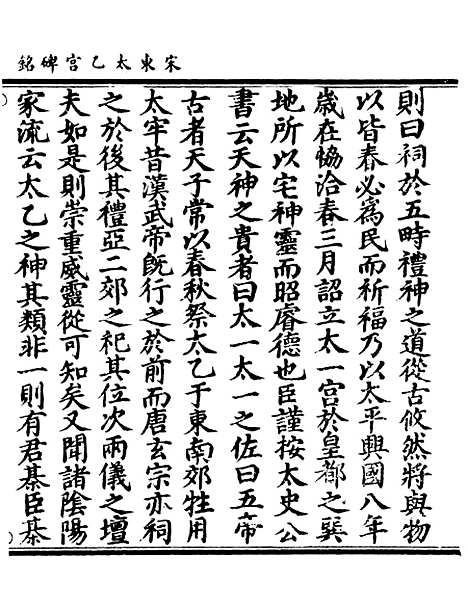 宋東太乙宮碑銘
則曰祠於五時禮神之道從古攸然將與物
以皆春必為民而祈福乃以太平興國八年
歲在恊洽春三月詔立太一宮於皇都之巽
地所以宅神靈而昭睿德也臣謹按太史公
書云天神之貴者曰太一太一之佐曰五帝
古者天子常以春秋祭太乙于東南郊牲用
太牢昔漢武帝旣行之於前而唐玄宗亦祠
之於後其禮亞二郊之祀其位次兩儀之壇
夫如是則崇重威靈從可知矣又聞諸陰陽
家流云太乙之神其類非一則有君棊臣棊